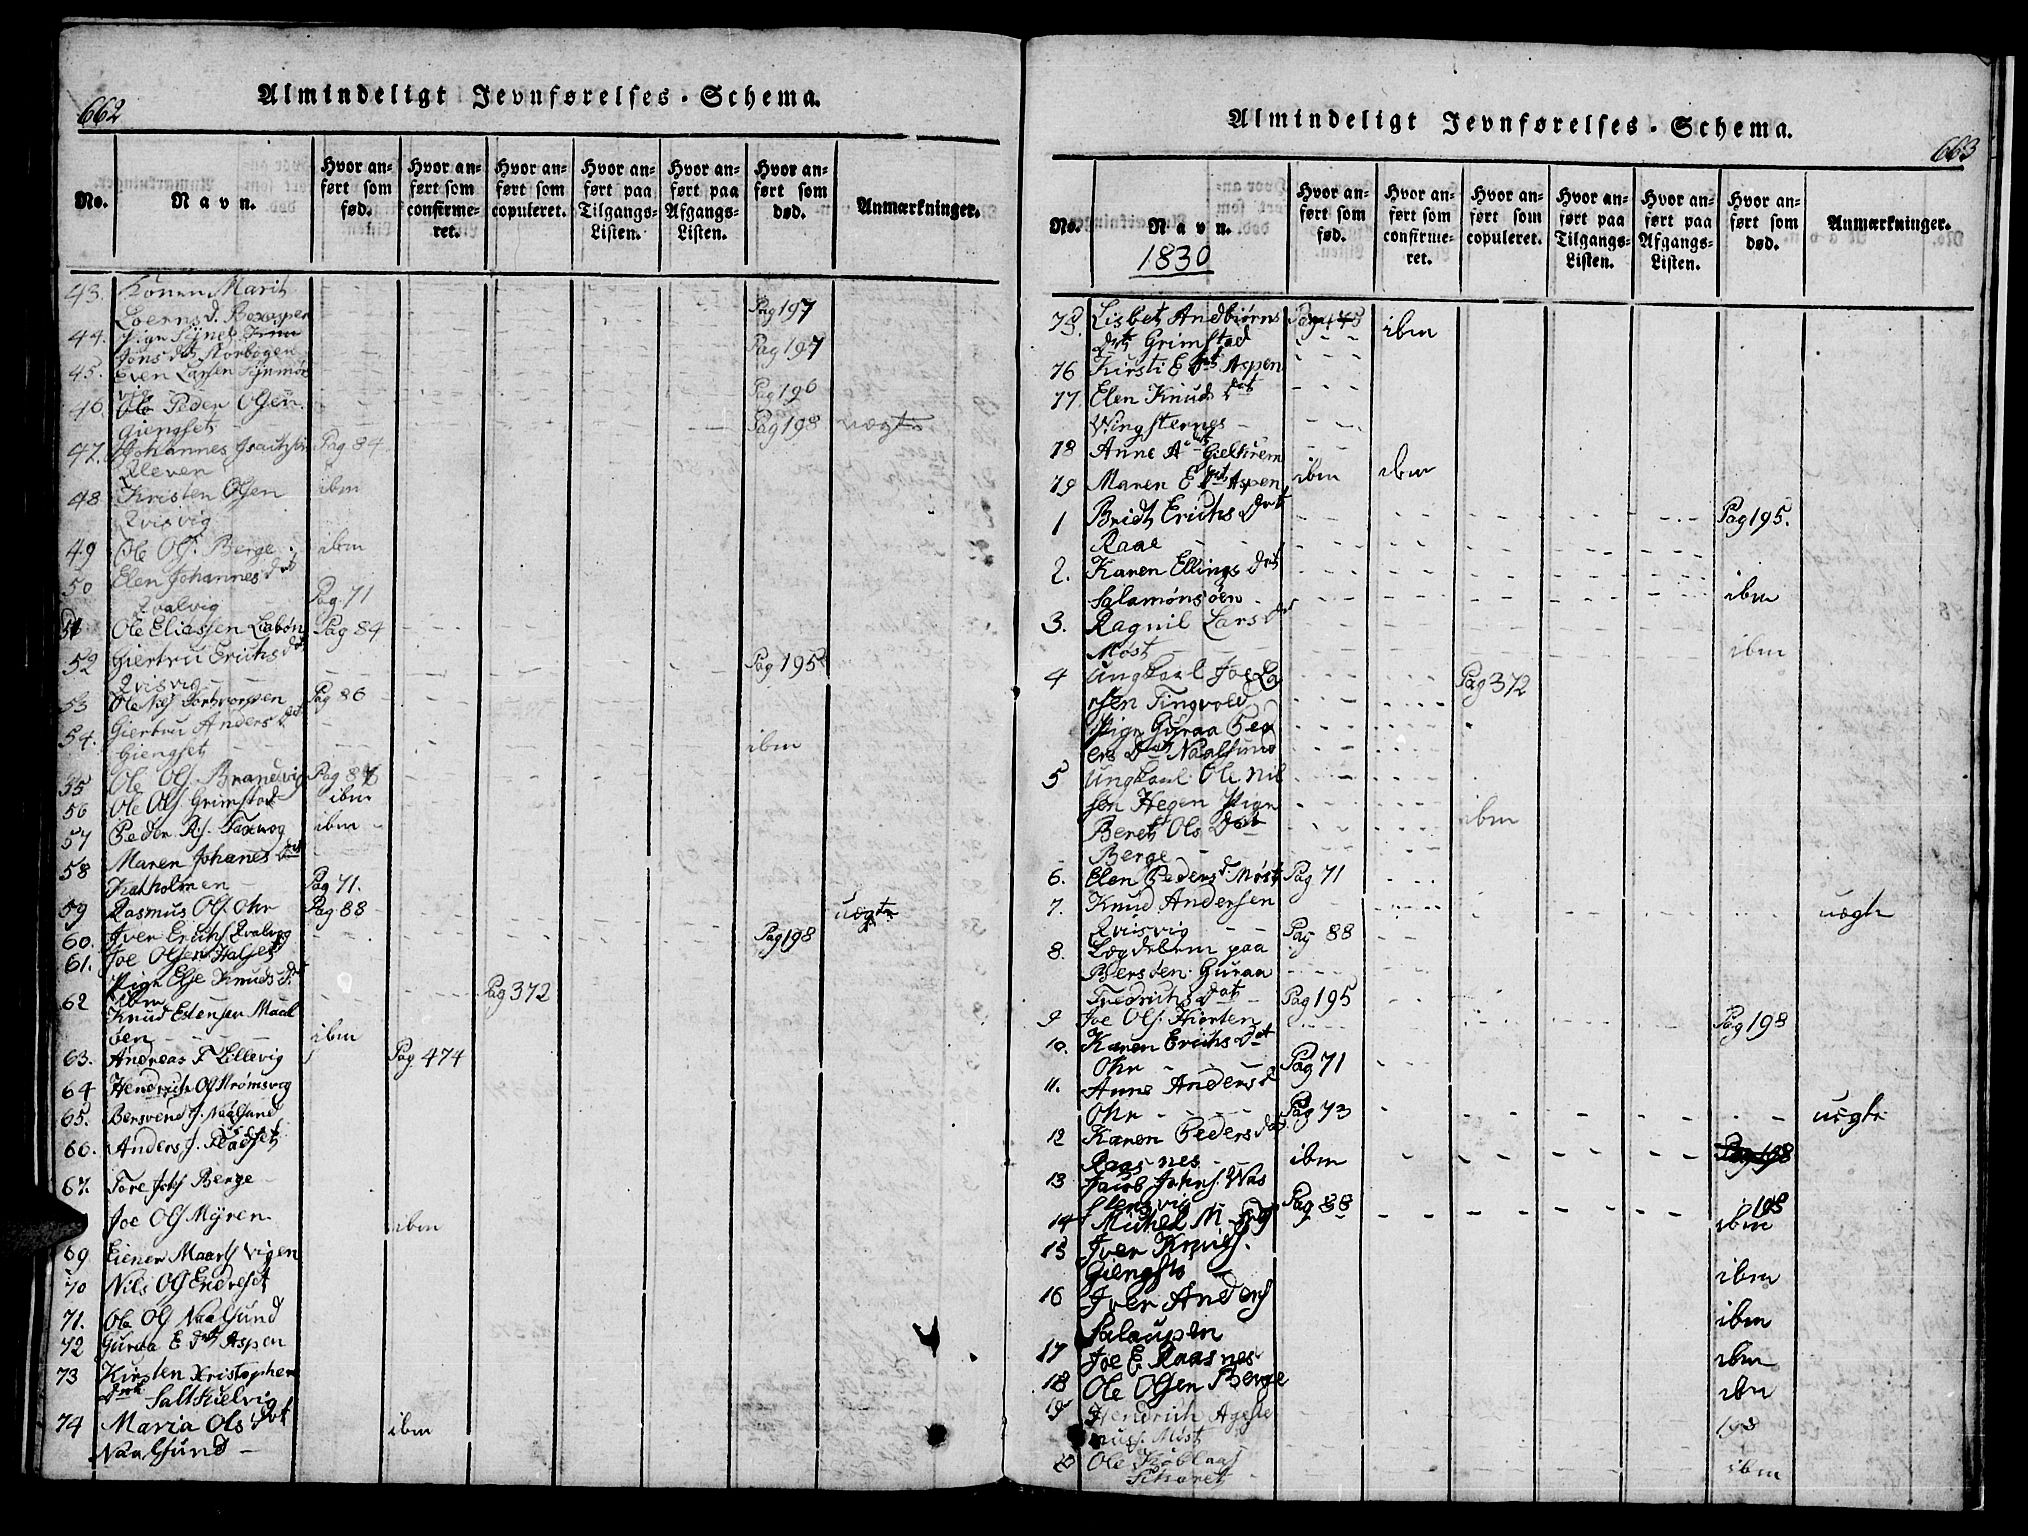 662
Almindeligt Jevnførelses-Schema.
No.
Navn.
Hvor an-
ført som
fød.
Hvor an-
ført som
confirme-
ret.
Hvor an-
ført som
copuleret.
Hvor an-
ført paa
Tilgangs-
Listen.
Hvor an-
ført paa
Afgangs-
Listen.
Hvor an-
ført som
død.
Anmærkninger.
43. Konen Marit
Pag 197
44.
Jons dt Storbogen Pag 197
45. Even Larsen
Pag 196
46. Ole Peder Olsen
Giengset Pag 198 uægte
47. Johannes Pag 84
48 Kristen Olsen ibm
Qvisvig
49 Ole Ols. Berge ibm
50 Elen Johannes dat
Qvalvig Pag 71
51 Ole Eliassen Pag 84
52 Giertru Erichs dat Pag 195
Qvisvig
53 Pag 86
54. Giertru Anders dat
Giengset ibm
55 Ole Ols. Brandvig Pag 86
56 Ole Ols. Grimstad ibm
57 Peder ibm
58 Maren Johanes dat
Kalholmen Pag 71.
59 Rasmus Ols. Ohr Pag 88 uægte
60. Iver Erichs Qvalvig Pag 198
61. Joe Olsen Halset
Pige Else Knuds d.
ibm Pag 372
62 Knud Estensen Maal
øen ibm
63. Andreas F Lillevig Pag 474
64 Hendrich Ols Strømsvig
65. Bersvend J. Naalsund
66. Anders J.
67. Tore Johs Berge
Joe Ols Myren ibm
69 Einer Vigen
70 Nils Ols Endreset
71. Ole Ols Naalsund
72 Guraa E dt Aspen
73 Kirsten Kristopher
datt Saltkielvig
74 Maria Ols Dat ibm
Naalsund
Almindeligt Jevnførelses-Schema.
663
No.
Navn.
1830
Hvor an-
ført som
fød.
Hvor an-
ført som
confirme-
ret.
Hvor an-
ført som
copuleret.
Hvor an-
ført paa
Tilgangs-
Listen.
Hvor an-
ført paa
Afgangs-
Listen.
Hvor an-
ført som
død.
Anmærkninger.
75. Lisbet Andbiørns ibm
drt Grimstad
76 Kirsti E dt Aspen
77. Elen Knuds Dat
Wingsternes
78 Anne A
79 Maren E dt Aspen ibm ibm
1 Bridt Erichs Dat Pag 195.
Raae
2. Karen Ellings Dat
Salamonsøen ibm
3. Ragnil Lars dat
Møst ibm
4 Ungkarl Joe La Pag 372
rsen Tingvold
Pige Guraa Ped
ers Dat Naalsund
5 Ungkarl Ole Nil
sen Hegen Pige ibm
Beret Ols Dat
Berge
6. Elen Peders d. Møst Pag 71
7. Knud Andersen uægte
Qvisvig Pag 88
8. Lægdelem paa
Bersøen Guraa
Fredrichs Dat Pag 195
9 Joe Ols. Hiorten Pag 198
10. Karen Erichs Dat
Ohr Pag 71
11. Anne Anders d
Ohr Pag 73 uægte
12 Karen Peders dat
Raasnes ibm Pag 198
13 Jacob Johns. Was
stengvig Pag 88 198
14 Michel M ibm
15 Iver Knuds.
Giengsto ibm
16 Iver Anders
ibm
17 Joe E Raasnes ibm
18 Ole Olsen Berge ibm
19 Hendrich 198
Møst
20 Ole ibm